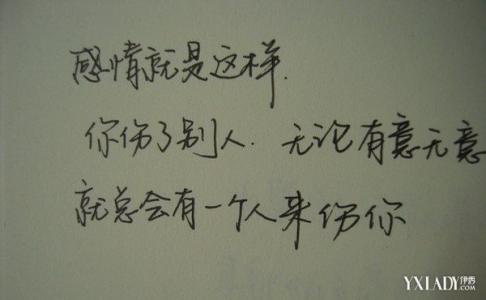 感情就是这样.
你伤了别人.无论有意无意
就总会有一个人来伤你
YXLADY伊秀
.COM